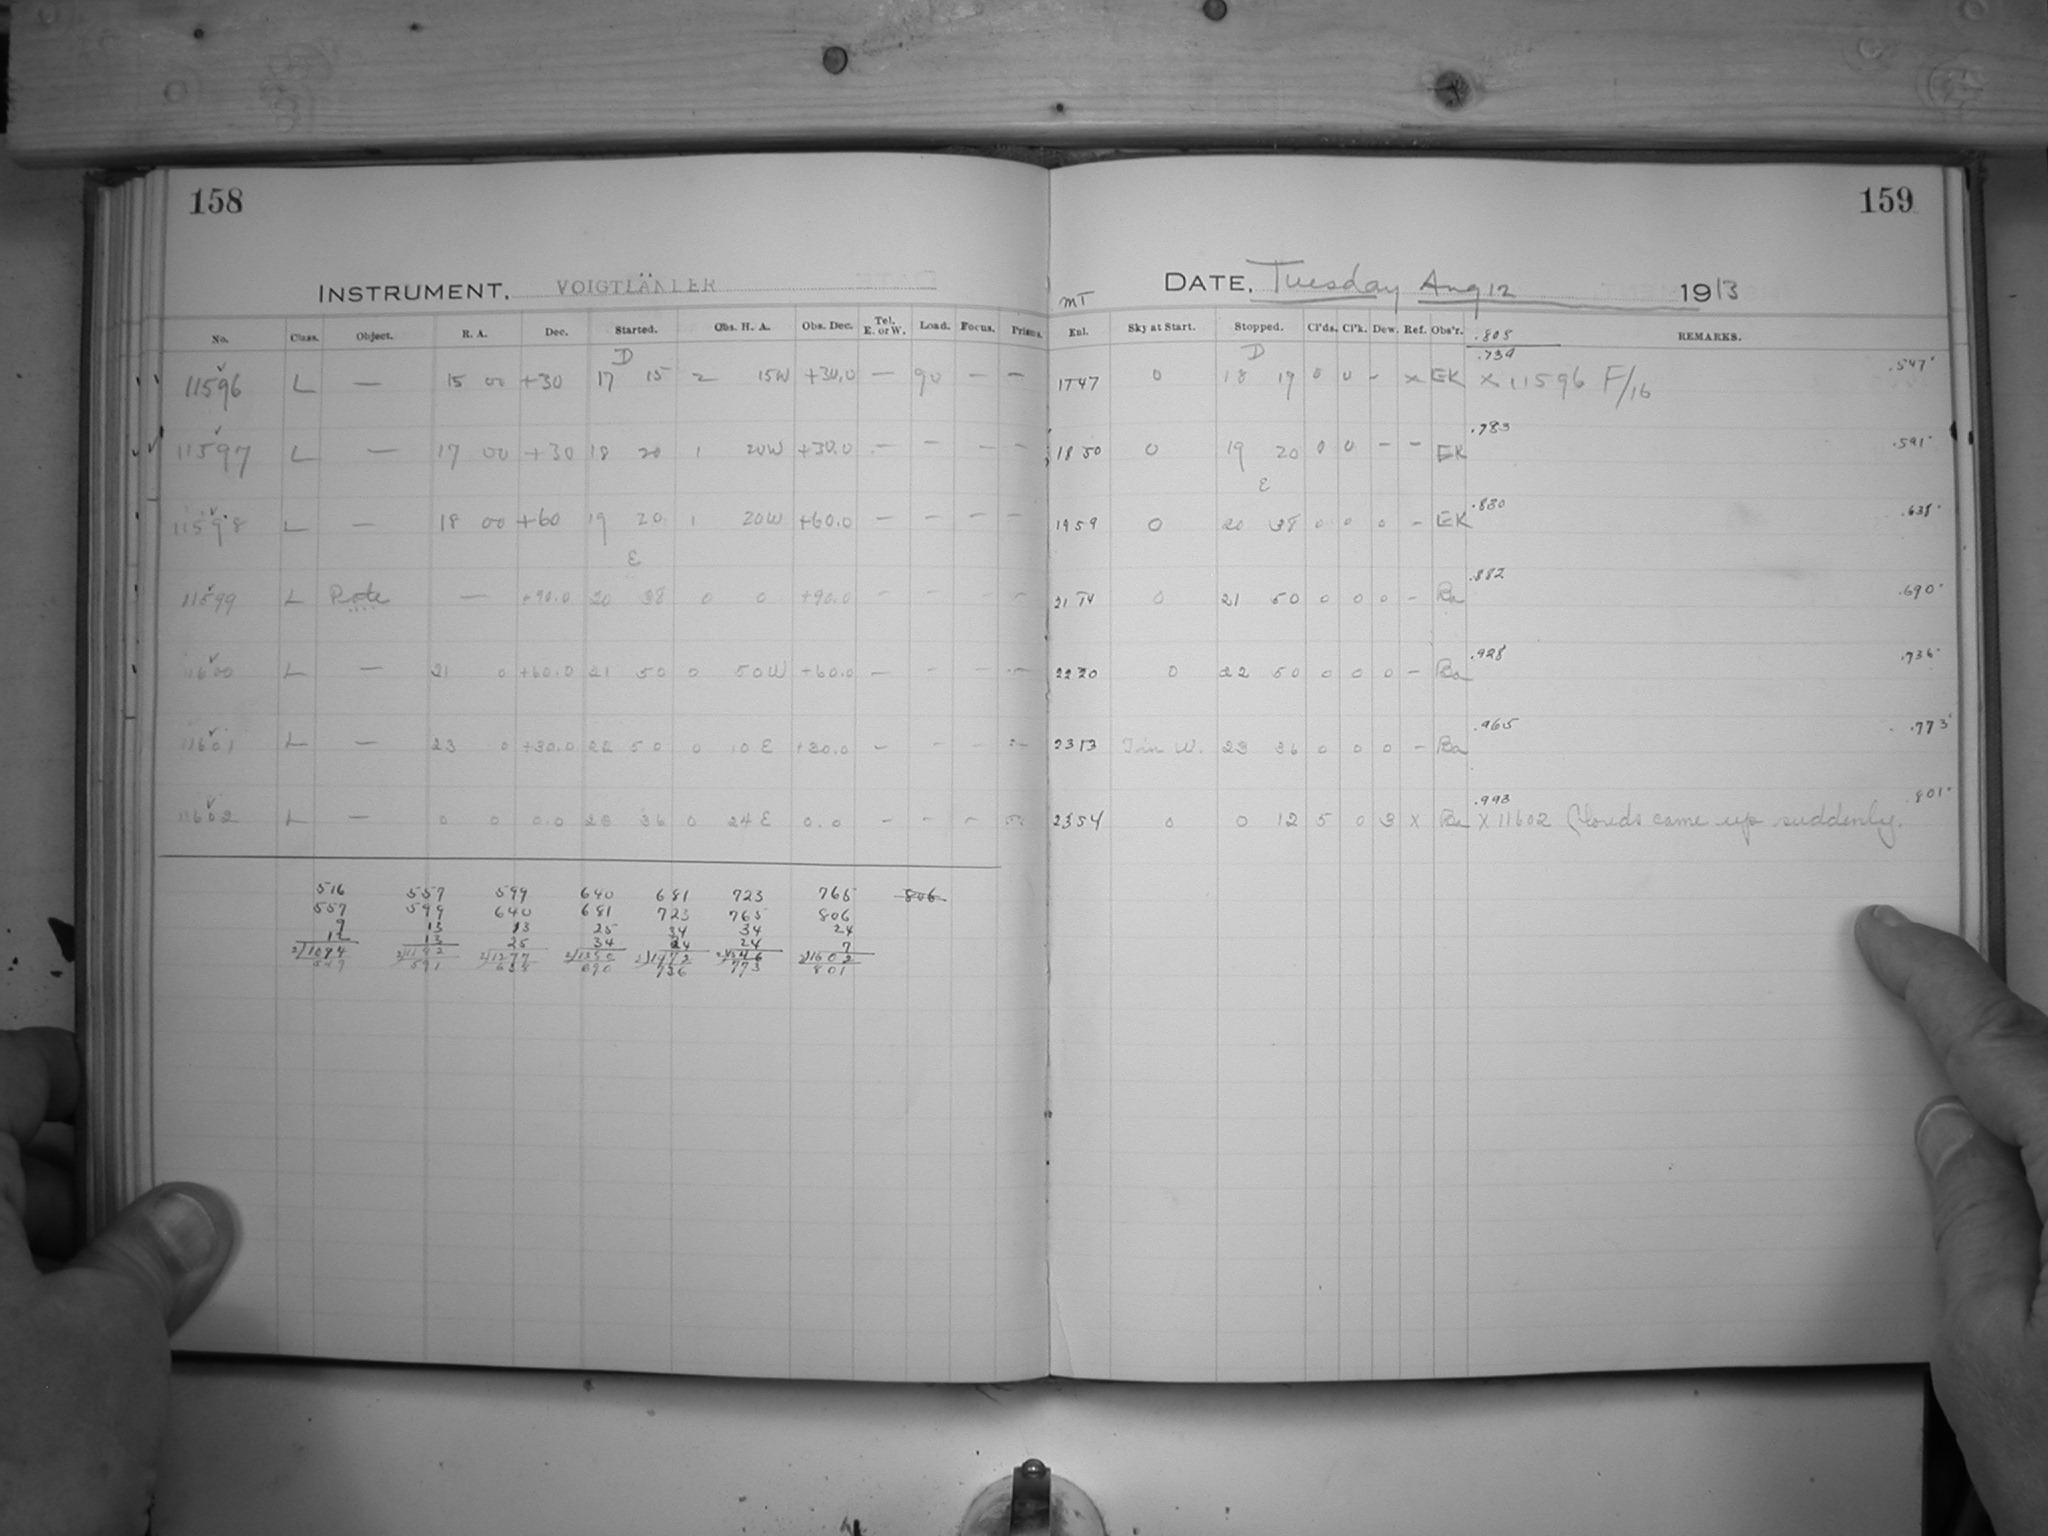 158
159
INSTRUMENT. VOIGTLÄNDER
DATE. Tuesday Aug 12 1913
No. Class. Object. R. A. Dec. Started. Obs. H. A. Obs. Dec. Tel. E. or W. Load. Focus. Prisms.
MT
Enl. Sky at Start. Stopped. Cl'ds. Cl'k. Dew. Ref. Obs'r. .805 REMARKS.
D D .739 .547
11596 L — 15 00 +30 17 15 2 15W +30.0 — 90 — — 1747 0 18 19 0 0 - x EK X 11596 F/16
.783
11597 L — 17 00 +30 18 20 1 20W +30.0 — — — — 1850 0 19 20 0 0 — — EK .591
E
.830
11598 L — 18 00 +60 19 20 1 20W +60.0 — — — — 1959 0 20 38 0 0 0 - EK .638
E
.882
11599 L Rote — +90.0 20 38 0 0 +90.0 - - - - 21 14 0 21 50 0 0 0 - Ba .690
.928
11600 L — 21 0 +60.0 21 50 0 50W +60.0 — - - - 2220 0 22 50 0 0 0 — Ba .736
.965
11601 L — 23 0 +30.0 22 50 0 10 E +30.0 - - - - 2313 W. 23 36 0 0 0 - Ba .773
.993
11602 L — 0 0 0.0 23 36 0 24 E 0.0 - - - 2354 0 0 12 5 0 3 X Ba X 11602 Clouds came up suddenly. .801
516 557 599 640 681 723 765 806
557 599 640 681 723 765 806
9 13 13 25 34 34 24
12 13 25 34 24 24 7
2)1094 2)1182 2)1277 2)1380 2)1472 2)1546 2)1602
547 591 638 690 736 773 801